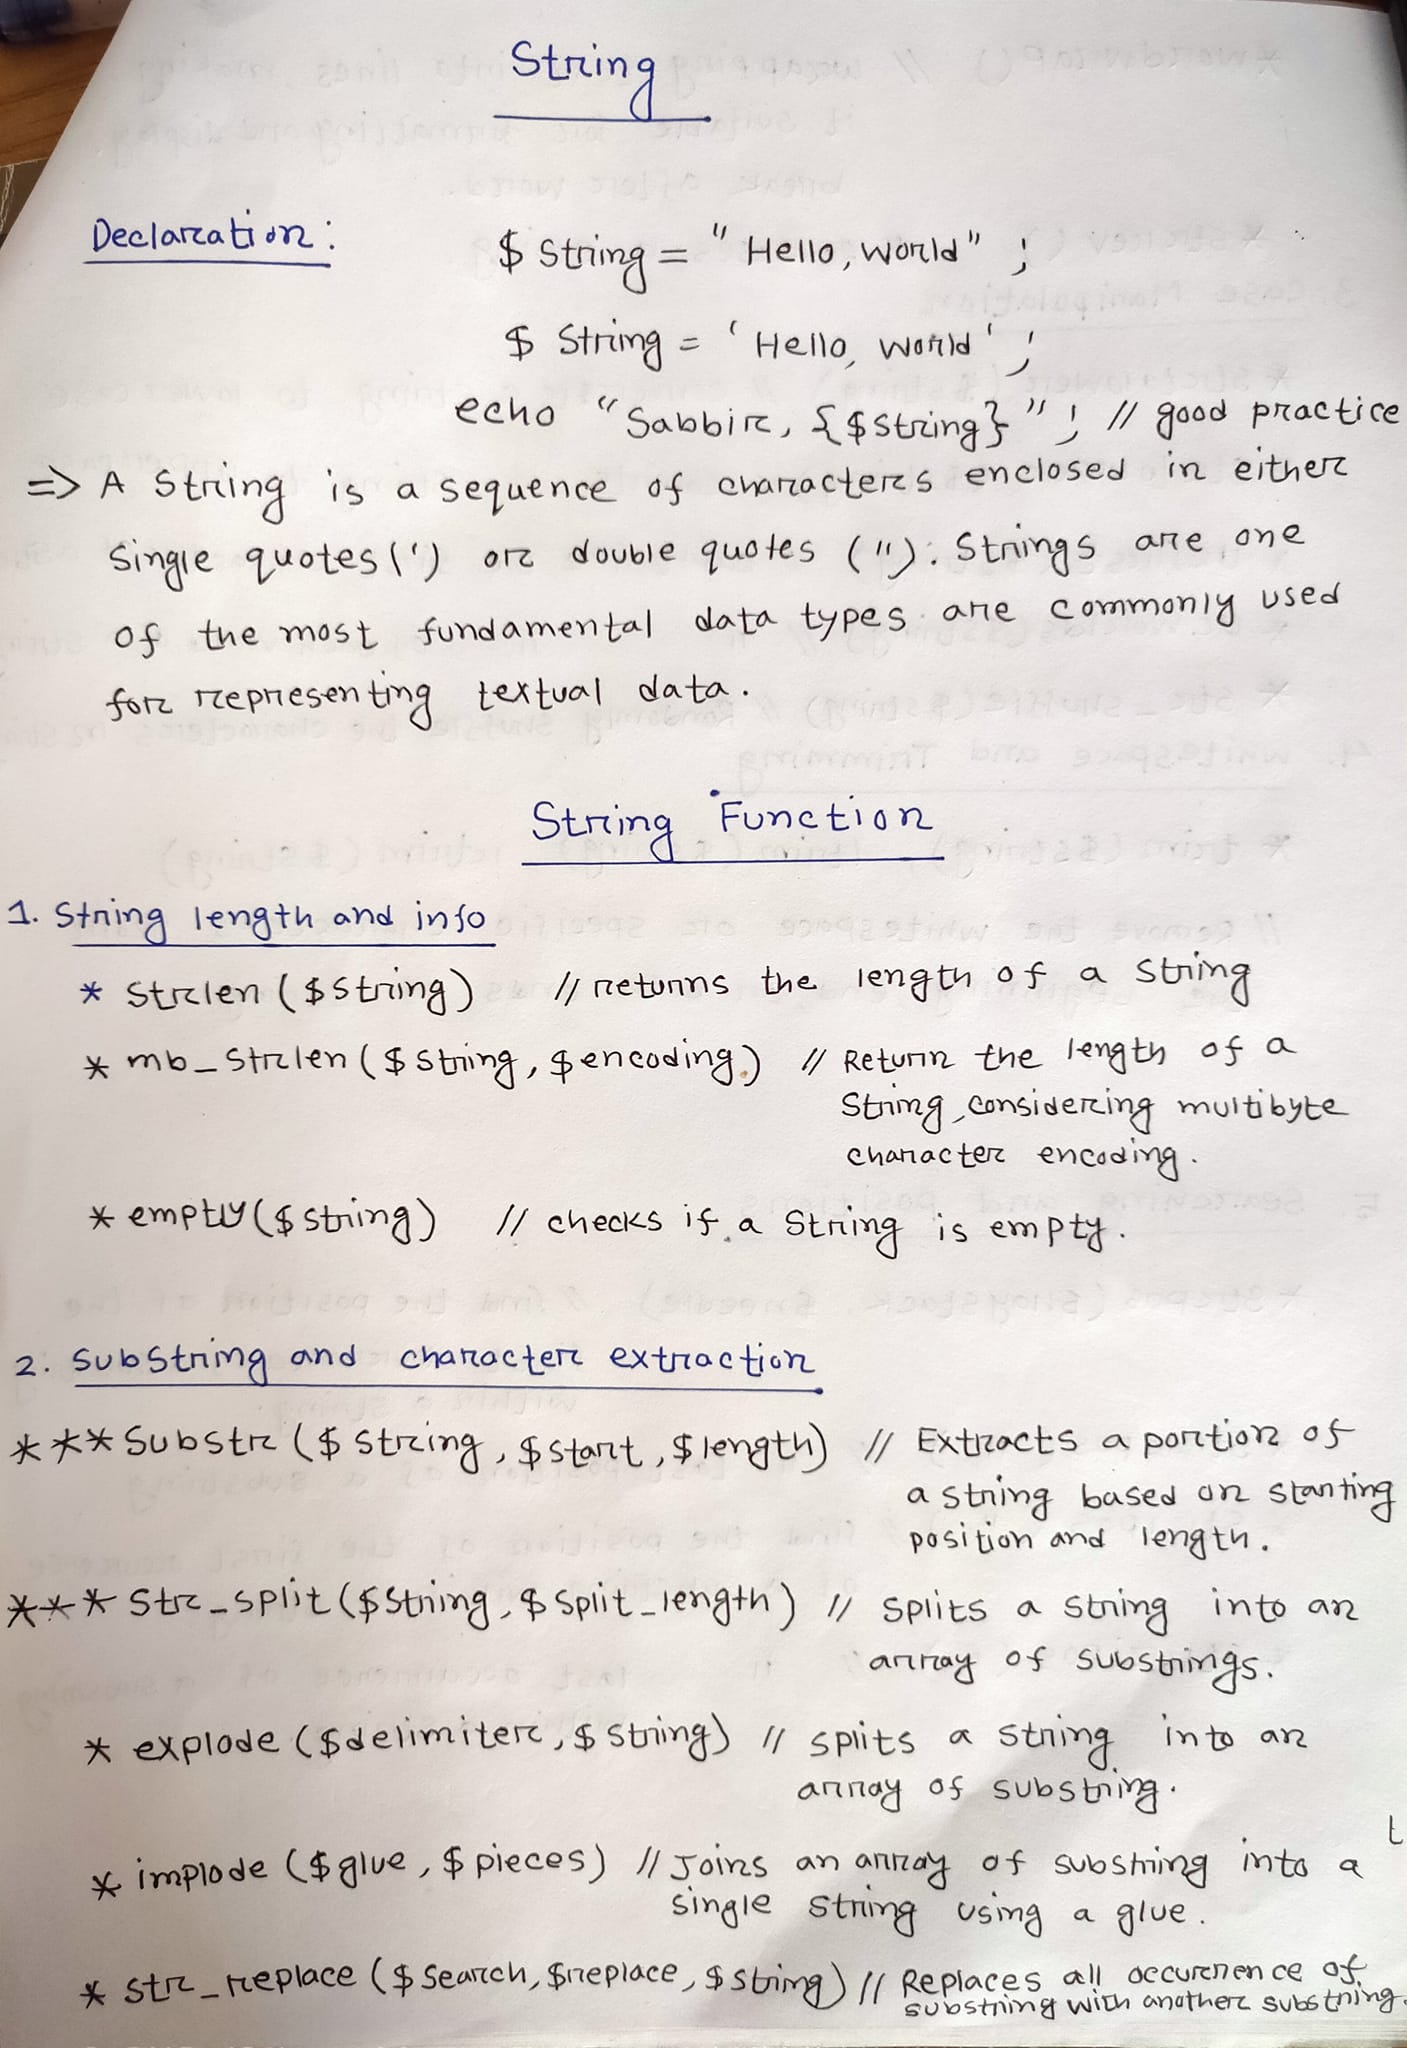 String
Declaration: $ String = "Hello, world" ;
$ String = 'Hello, world' ;
echo "Sabbir, {$string}" ; // good practice
=> A String is a sequence of characters enclosed in either
single quotes (') or double quotes ("). Strings are one
of the most fundamental data types are commonly used
for representing textual data.
String Function
1. String length and info
* strlen ($string) // returns the length of a string
* mb_strlen ($string, $encoding) // Return the length of a
string, considering multibyte
character encoding.
* empty ($string) // checks if a String is empty.
2. Substring and character extraction
*** Substr ($string, $start, $length) // Extracts a portion of
a string based on starting
position and length.
*** Str_split ($string, $split_length) // splits a string into an
array of substrings.
* explode ($delimiter, $string) // splits a string into an
array of substring.
* implode ($glue, $pieces) // Joins an array of substring into a
single string using a glue.
* str_replace ($search, $replace, $string) // Replaces all occurrence of
substring with another substring.